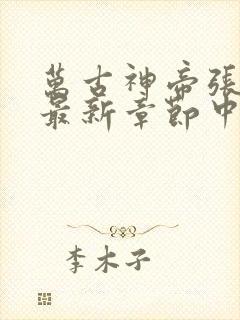 萬古神帝張
最新章節中
李木子